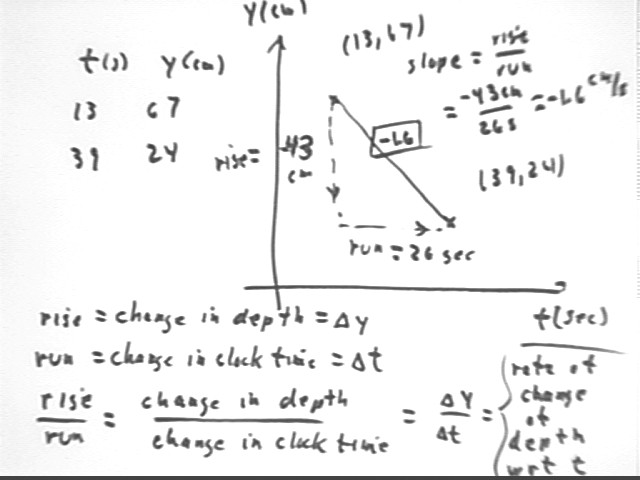 y(cm)
(13,67)
t(s) y(cm)
slope = rise/run
13 67
= -43cm/26s = -1.6 cm/s
39 24
rise = -43 cm
-1.6
(39,24)
run = 26 sec
t(sec)
rise = change in depth = Δy
run = change in clock time = Δt
rise/run = change in depth/change in clock time = Δy/Δt =
rate of
change
of
depth
wrt t